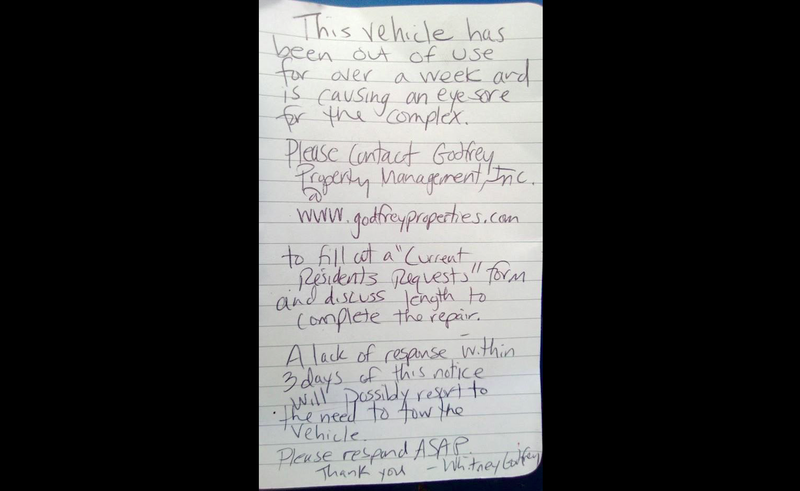 This vehicle has
been out of use
for over a week and
is causing an eye sore
for the complex.
Please Contact Godfrey
Property Management, Inc.
@
www.godfreyproperties.com
to fill out a "Current
Residents Requests" form
and discuss length to
complete the repair.
A lack of response within
3 days of this notice
will possibly resort to
the need to tow the
vehicle.
Please respond ASAP.
Thank you - Whitney Godfrey